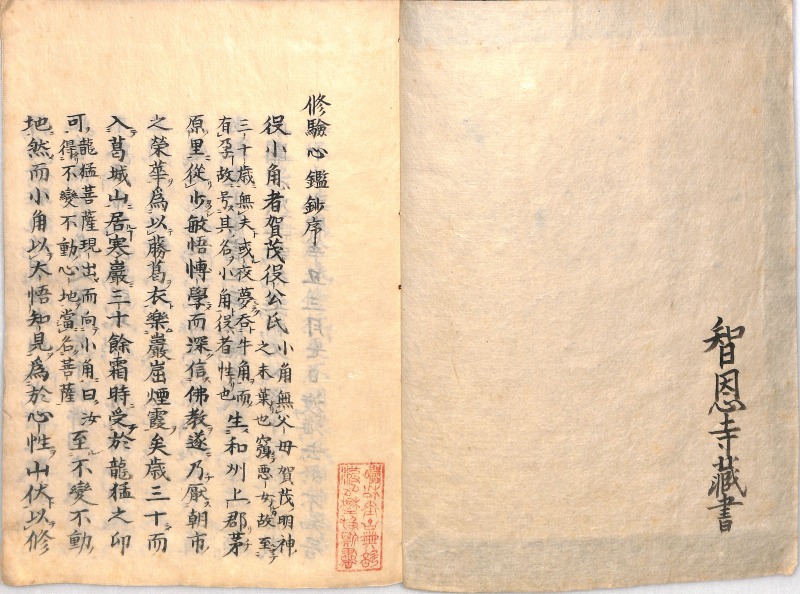 智恩寺藏書
修驗心鑑鈔序
役小角者賀茂役公氏小角無父母賀茂明神
之末葉也窮悪女故至
三十歳無夫或夜夢呑牛角而
有孕故号其名小角役者性也生和州上郡茅
原里從少敏悟博學而深信佛教遂乃厭朝市
之榮華爲以藤葛衣樂巖崫煙霞矣歳三十而
入葛城山居寒巖三十餘霜時受於龍猛之印
可龍猛菩薩現出而向小角曰汝
得不變不動心地當名菩薩至不變不動
地然而小角以大悟知見爲於心性山伏以修